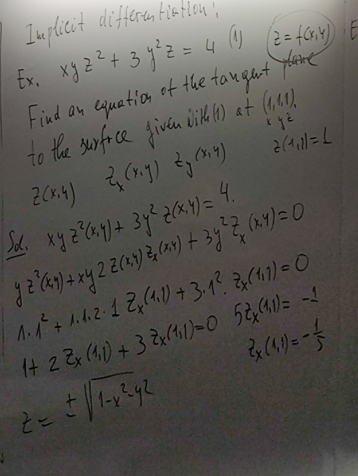 Implicit differentiation:
Ex. xyz² + 3y²z = 4 (1) z = f(x,y)
Find an equation of the tangent plane
to the surface given with (1) at (1,1,1).
x y z
z(x,y) z_x(x,y) z_y(x,y) z(1,1) = 1
Sol. xyz²(x,y) + 3y²z(x,y) = 4.
yz²(x,y) + xy2z(x,y)z_x(x,y) + 3y²z_x(x,y) = 0
1·1² + 1·1·2·1 z_x(1,1) + 3·1²·z_x(1,1) = 0
1 + 2z_x(1,1) + 3z_x(1,1) = 0 5z_x(1,1) = -1
z_x(1,1) = -1/5
z = ±√(1-x²-y²)